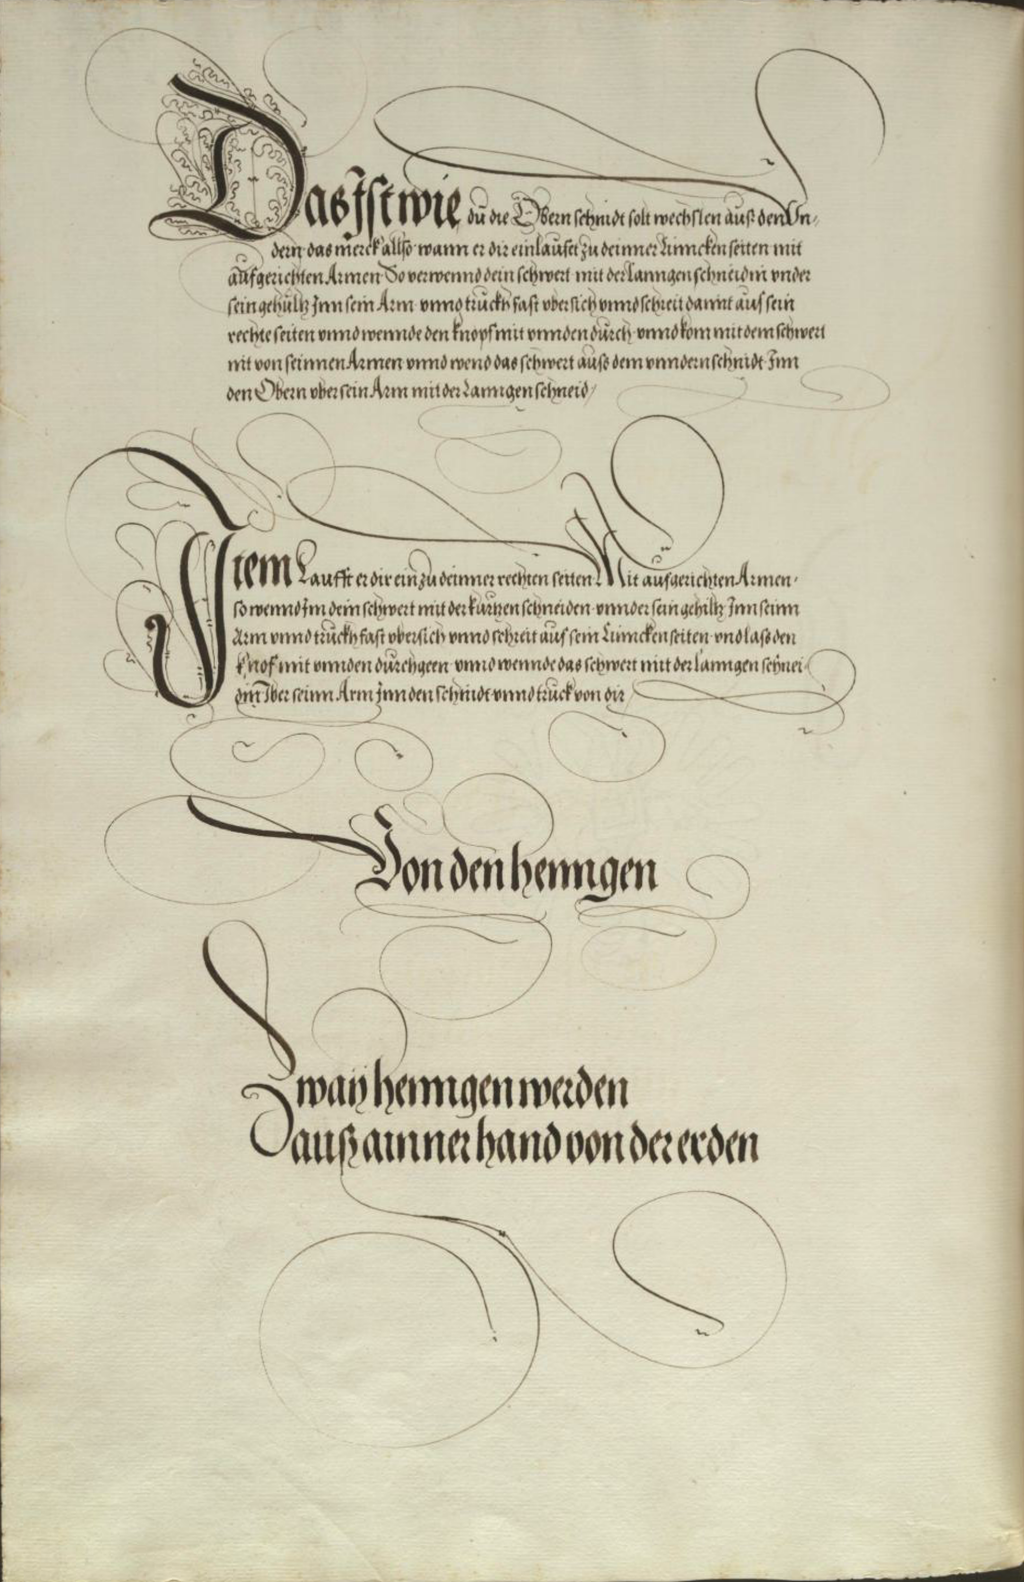 Das Ist wie du die Obern schnidt solt wechslen auß den Vn-
dern· das merck allso· wann er dir einlauft zu deinner Linncken seiten mit
aufgerichten Armen· So verwennd dein schwert mit der Lanngen schneid in vnder
sein gehültz Inn sein Arm· vnnd truckh fast vbersich vnnd schreit damit auf sein
rechte seiten vnnd wennde den knopf mit vnnden durch· vnnd kom mit dem schwert
nit von seinnen Armen vnnd wend das schwert auß dem vnndern schnidt· Inn
den Obern vber sein Arm mit der Lanngen schneid/
Item Laufft er dir ein zu deinner rechten seiten· Mit aufgerichten Armen·
so wennd Im dein schwert mit der kurtzen schneiden· vnnder sein gehiltz Inn seinn
Arm vnnd truckh fast vbersich vnnd schreit auf sein Linncken seiten· vnd laß den
knof mit vnnden durchgeen· vnnd wennde das schwert mit der lanngen schnei-
din Iber seinn Arm Inn den schnidt· vnnd truck von dir/
Von den henngen
Zwaÿ henngen werden
auß ainner hand von der erden